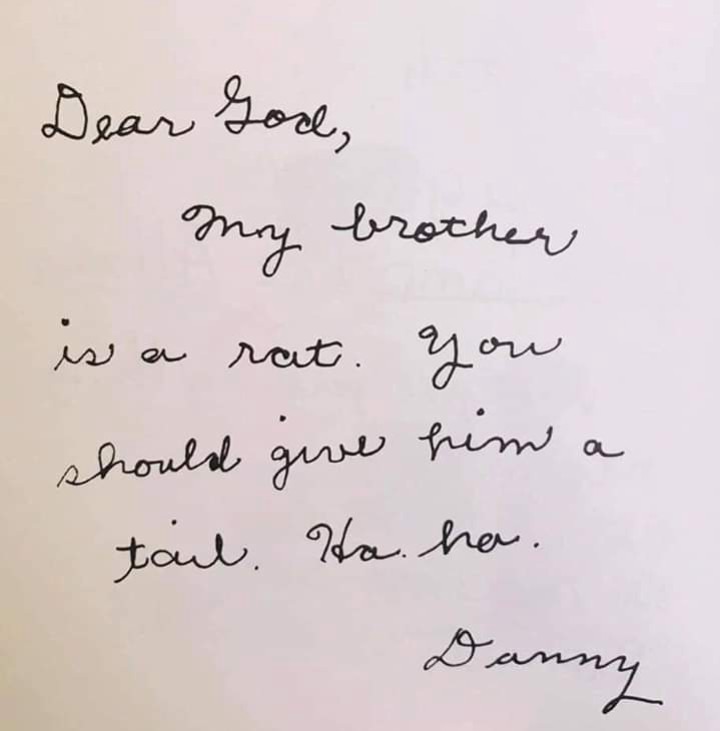 Dear God,
My brother
is a rat. You
should give him a
tail. Ha. ha.
Danny